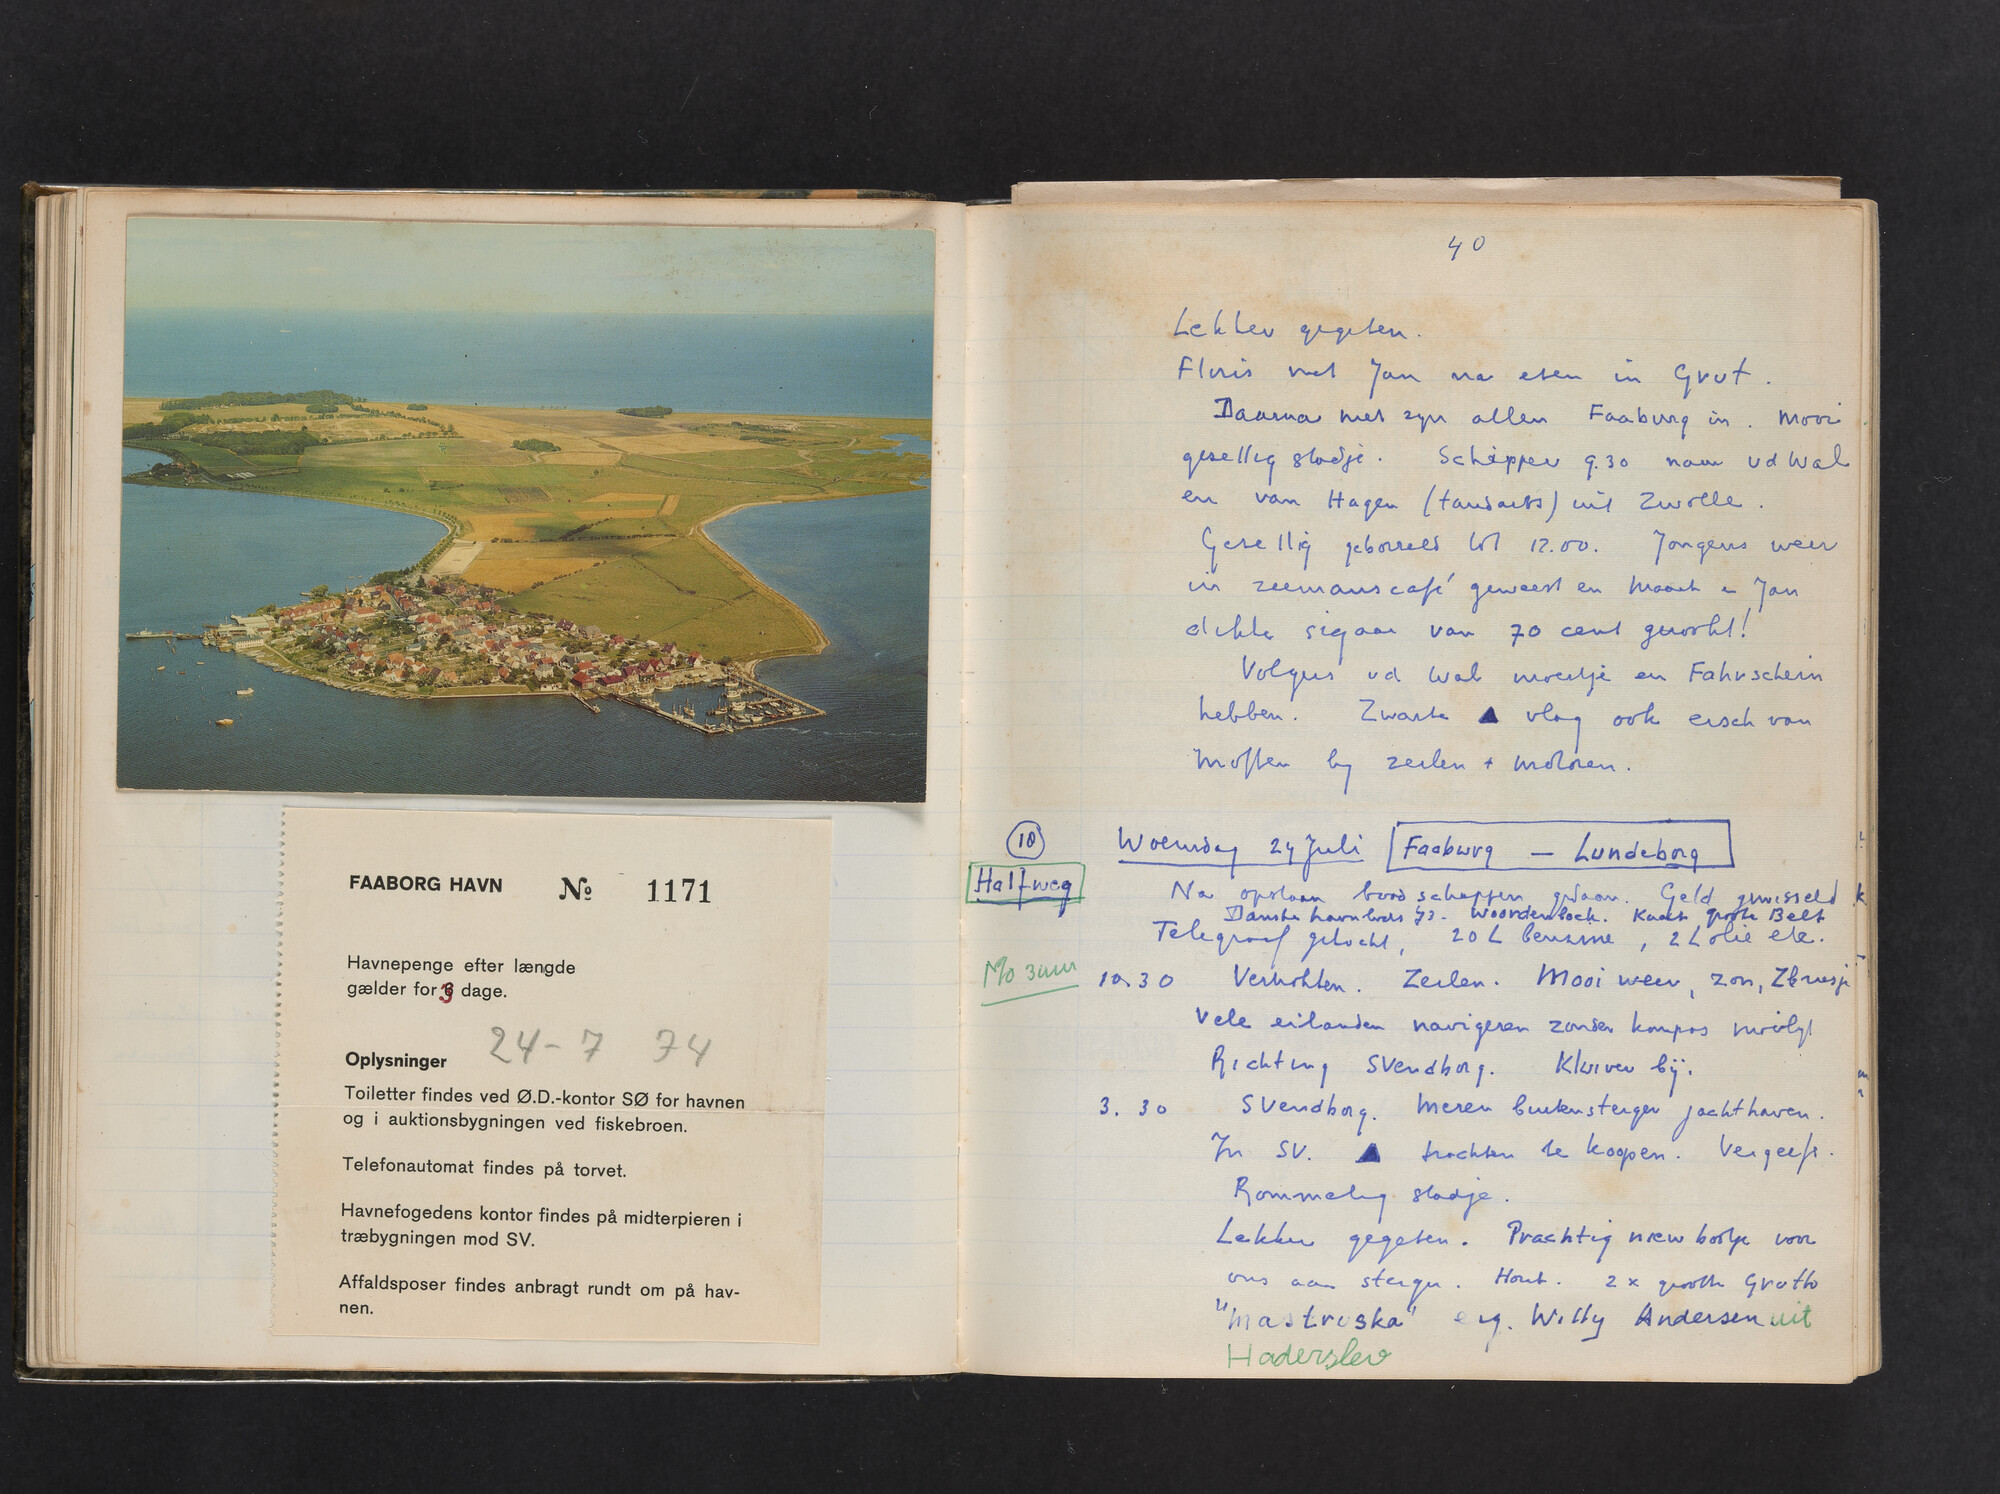 FAABORG HAVN № 1171
Havnepenge efter længde
gælder for 3 dage.
24-7 74
Oplysninger
Toiletter findes ved Ø.D.-kontor SØ for havnen
og i auktionsbygningen ved fiskebroen.
Telefonautomat findes på torvet.
Havnefogedens kontor findes på midterpieren i
træbygningen mod SV.
Affaldsposer findes anbragt rundt om på hav-
nen.
40
Lekker gegeten.
Floris met Jan na eten in Grut.
Daarna met zyn allen Faaburg in. Mooi
gesellig stadje. Schipper 9.30 naar vd Wal
en van Hagen (tandarts) uit Zwolle.
Gesellig geborreld tot 12.00. Jongens weer
in zeemanscafé geweest en Maart & Jan
dikke sigaar van 70 cent gerookt!
Volgens vd Wal moet je en Fahrschein
hebben. Zwarte ▲ vlag ook eisch van
Moffen by zeilen + motoren.
10 Woensdag 24 Juli Faaburg — Lundeborg
Halfweg
Na opstaan boodschappen gedaan. Geld gewisseld
Danske havnlods 73. Woordenboek. Kaart grote Belt
Telegraaf gekocht, 20 L benzine, 2 L olie etc.
Mo 3 uur
10.30 Verkohlen. Zeilen. Mooi weer, zon,
Vele eilanden navigeren zonder kompas
Richting Svendborg. Kluiver bij.
3.30 Svendborg. Meren buitensteiger jachthaven.
In SV. ▲ trachten te koopen. Vergeefs.
Rommelig stadje.
Lekker gegeten. Prachtig nieuw bootje voor
ons aan steiger. Hout. 2 x grootte Grutto
"Mastruska" eig. Willy Andersen uit
Haderslev